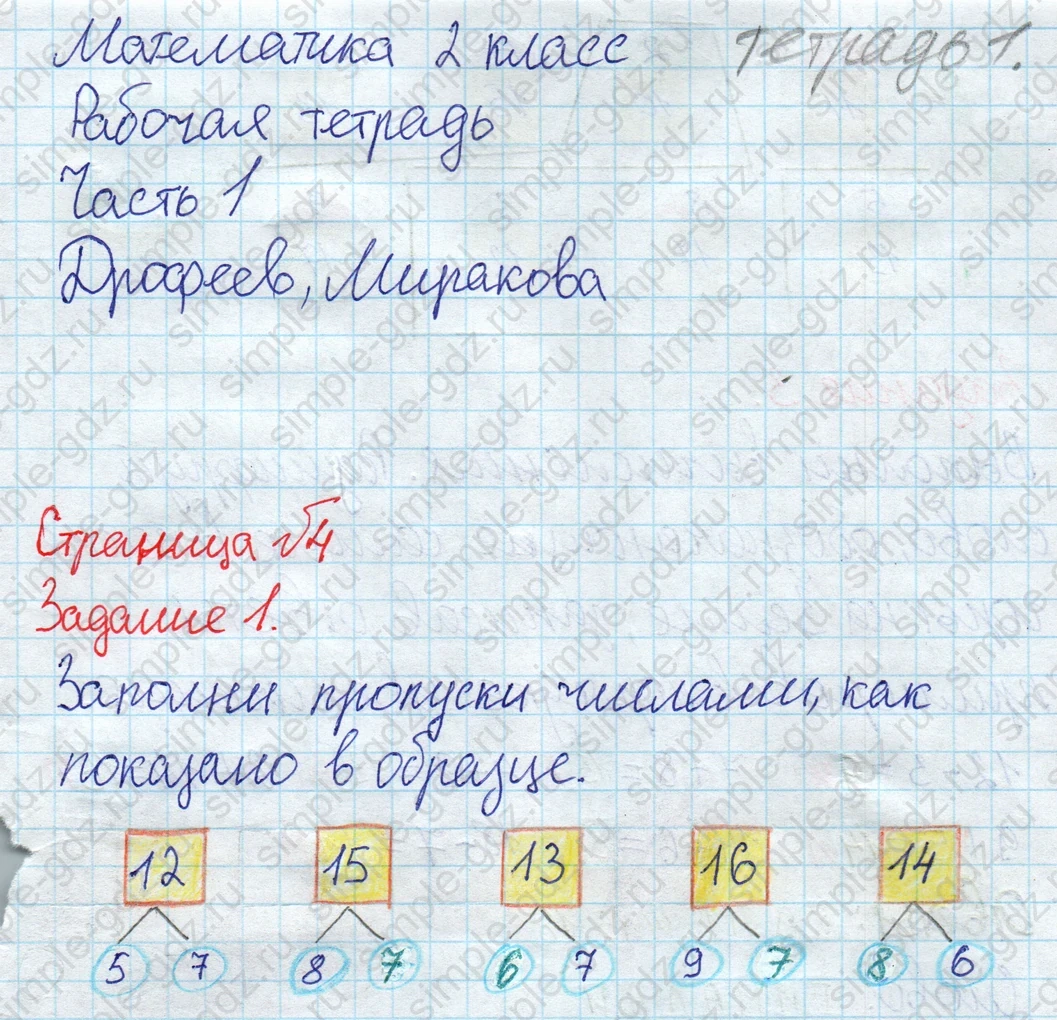 Математика 2 класс тетрадь 1.
Рабочая тетрадь
Часть 1
Дрофеев, Миракова
Страница №4
Задание 1.
Заполни пропуски числами, как
показано в образце.
12 15 13 16 14
5 7 8 7 6 7 9 7 8 6
simple-gdz.ru